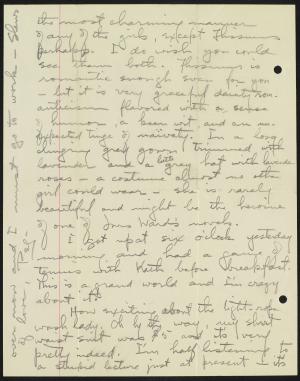 the most charming manner
of any of the girls, except Flossums
perhaps. I do wish you could
see them both. Flossums is
romantic enough even for you
- but it is very graceful dainty rom-
anticism flavored with a sense
of humor, a keen wit and an un-
expected tinge of naivete. In a long
clinging gray gown trimmed with
lavender and a big gray hat with lavender
roses - a costume almost no other
girl could wear - she is rarely
beautiful and might be the heroine
of one of Mrs Ward's novels.
I got up at six o'clock yesterday
morning and had a game of
tennis with Keith before breakfast.
This is a grand world and I'm crazy
about it.
How exciting about the tight-rope
wash lady. Oh by the way, my shirt
waist suit was $5 and its very
pretty indeed. I'm half listening to
a stupid lecture just at present - its
over now and I must go to work - Slews
of love,